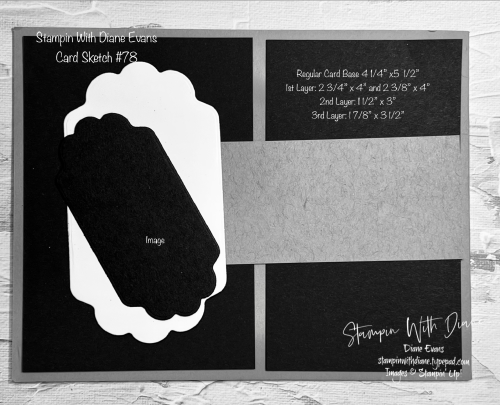 Stampin With Diane Evans
Card Sketch #78
Regular Card Base 4 1/4" x5 1/2"
1st Layer: 2 3/4" x 4" and 2 3/8" x 4"
2nd Layer: 1 1/2" x 3"
3rd Layer: 1 7/8" x 3 1/2"
Image
Stampin With Dia
Diane Evans
stampinwithdiane.typepad.com
Images © Stampin' Up!